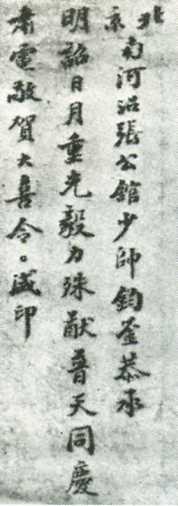 北京南河沿張公館少師鈞鉴恭承
明詔日月重光毅力殊猷普天同慶
肅電敬賀大喜令。咸印